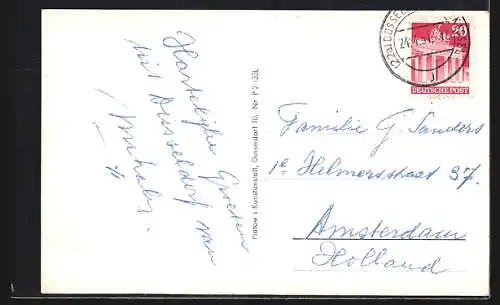 Hartelijke Groeten
uit Düsseldorf van
Platow's Kunstanstalt, Düsseldorf 10, Nr. P 9133L
(22a) DÜSSEL
20
DEUTSCHE POST
Familie G. Sanders
1e Helmersstraat 37.
Amsterdam
Holland